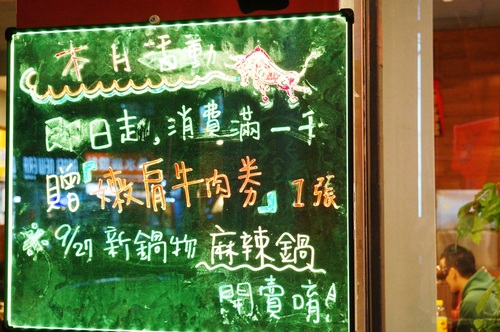 本月活動
即日起,消費滿一千
贈『嫩肩牛肉券』1張
9/27新鍋物 麻辣鍋
開賣唷!